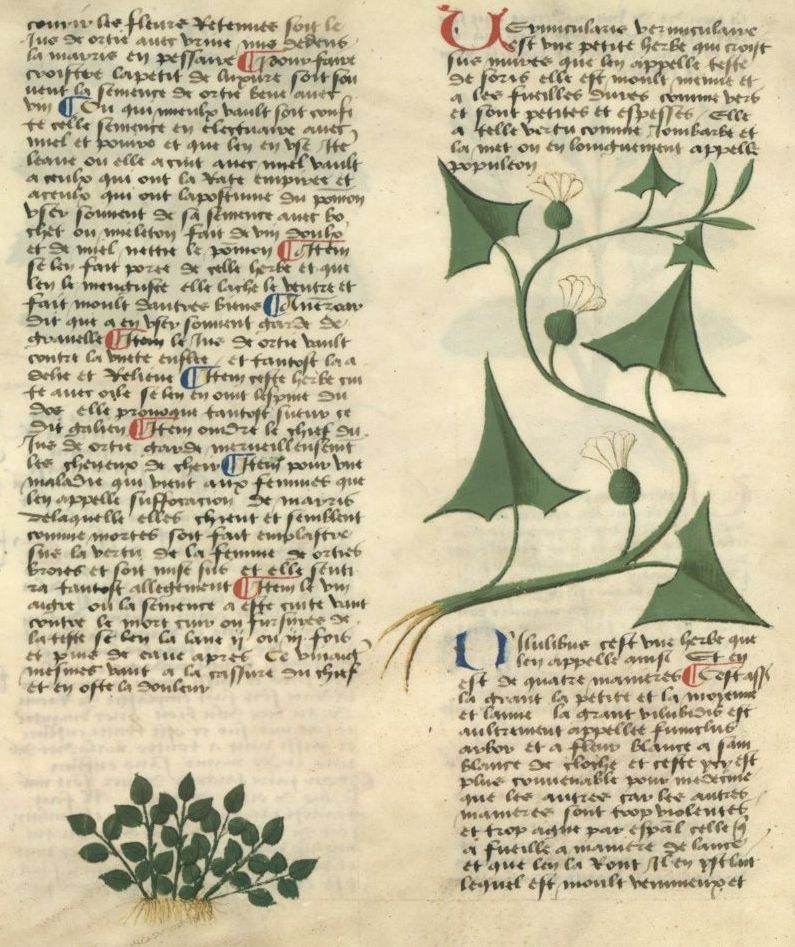 couvrir les fleurs Retenues soit le
Jus de ortie avec vrine mis dedens
la marris en pessaire ¶ pour faire
croistre lapetit de luxure soit sou
uent la semence de ortie beue auec
vin ¶ Ou qui mieulx vault soit confi
te celle semence en electuaire auec
miel et poivre et que len en vse Ite
leaue ou elle a cuit auec miel vault
a ceulx qui ont la rate empiree et
a ceulx qui ont lapostume du pomon
vser souuent de sa semence auec bo
chet ou mieleton fait de vin doulx
et de miel nettie le pomon ¶ Item
se len fait poree de celle herbe et que
len le mengusse elle lache le ventre et
fait moult dautres biens ¶
dit que a en vser souuent garde de
grauelle ¶ Item le Jus de ortie vault
contre la vuete enflee et tantost la a
debie et Relieue ¶ Item ceste herbe cui
te auec oile se len en oint lespine du
dos elle prouoque tantost sueur ce
dit galien ¶ Item oindre le chief du
Jus de ortie garde merueilleusemt
les cheueux de cheir ¶ Item pour vne
maladie qui vient aux femmes que
len appelle suffocacion de marris
delaquelle elles chieent et semblent
comme mortes soit fait emplastre
sus la vertu de la femme de orties
broies et soit mise sus et elle senti
ra tantost allegement ¶ Item le vin
aigre ou la semence a este cuite vault
contre le mort cuir ou fursures de
la teste se len la laue ij ou iij fois
et puis de eaue apres Ce vinaig
mesmes vaut a la cassure du chief
et en oste la douleur
Uermicularis vermiculaire
est vne petite herbe qui croist
sus mures que len appelle teste
de soris elle est moult menue et
a les fueilles dures comme vers
et sont petites et espesses Elle
a telle vertu comme Jombarbe et
la met on en loinguement appelle
populeon
Uilubilis cest vne herbe que
len appelle ainsi Et en
est de quatre manieres ¶ Cest ass
la grant la petite et la moyenne
et laune la grant vilubilis est
aultrement appellee funiclus
arbor et a fleur blance a sam
blance de cloche et ceste cy est
plus conuenable pour medecine
que les autres car les autres
manieres sont trop violentes
et trop ague par espal celle q
a fueille a maniere de lance
et que len la Ront Il en yst lait
lequel est moult venimeux et